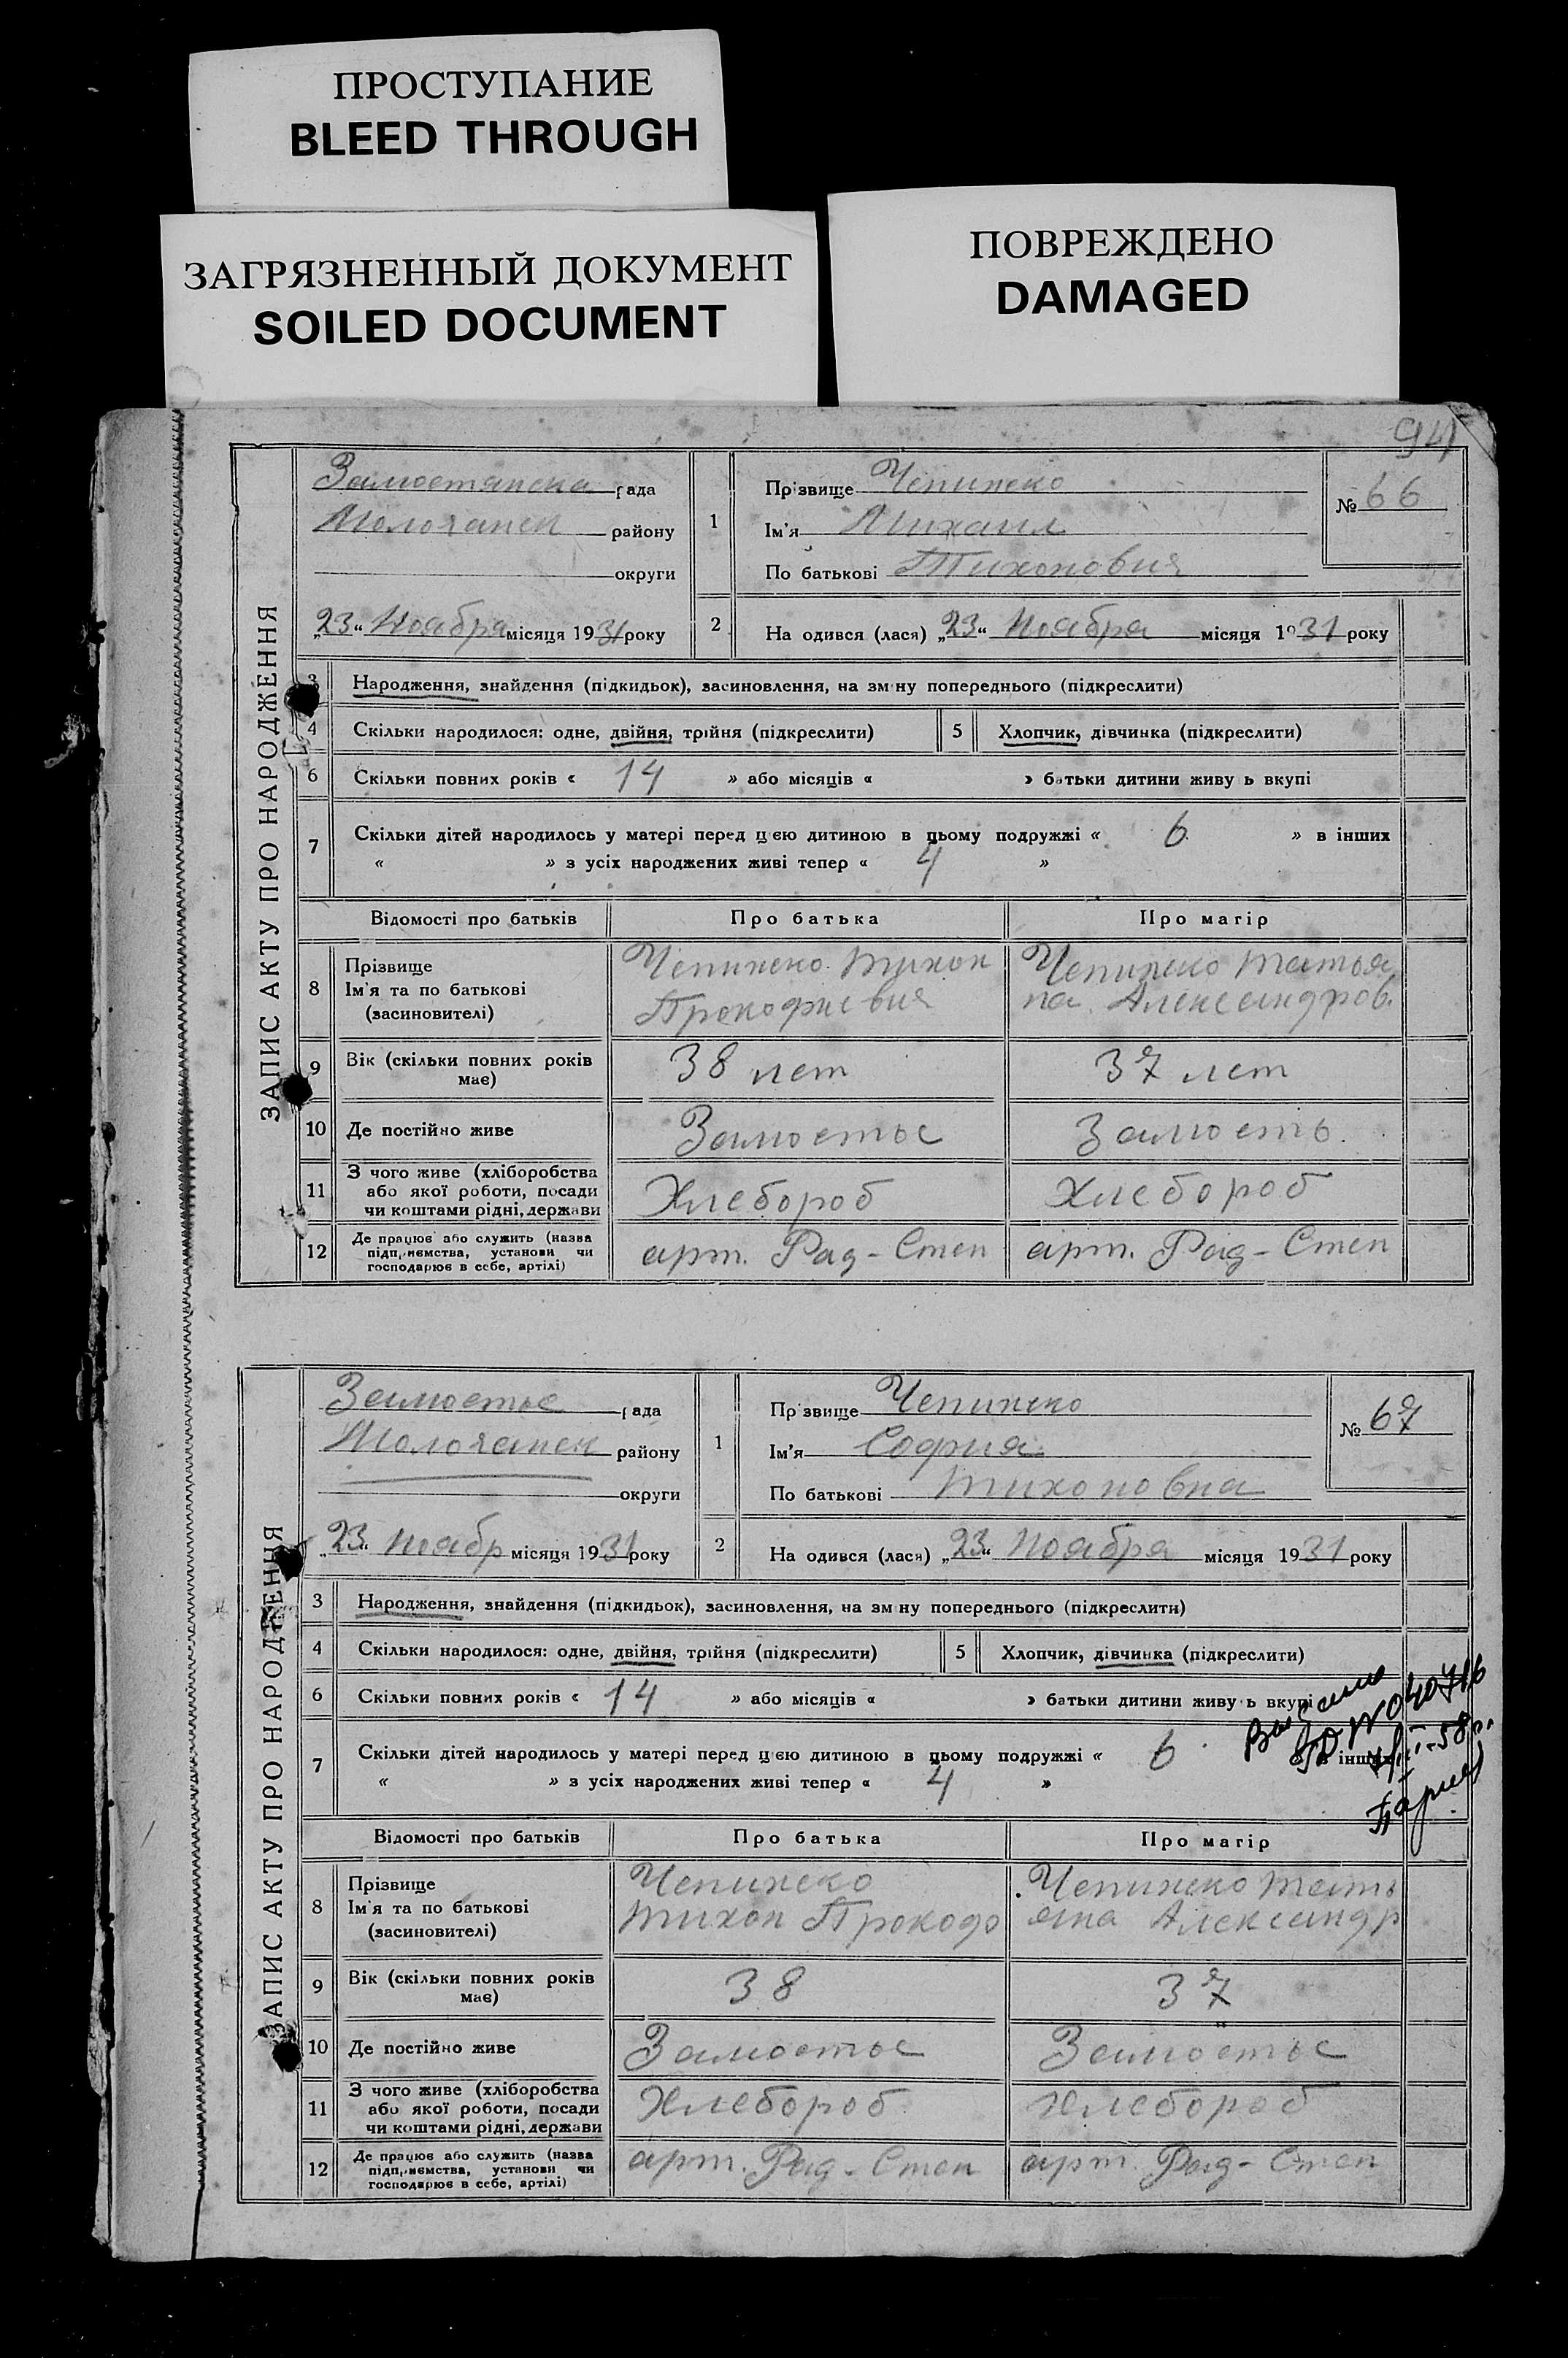 ПРОСТУПАНИЕ
BLEED THROUGH
ЗАГРЯЗНЕННЫЙ ДОКУМЕНТ
SOILED DOCUMENT
ПОВРЕЖДЕНО
DAMAGED
94
ЗАПИС АКТУ ПРО НАРОДЖЕННЯ
Замостянска рада
Молочанск району
округи
„23“ Ноября місяця 1931 року
1
Прізвище Чепинско
Ім'я Михаил
По батькові Тихонович
№ 66
2
На одився (лася) „23“ Ноября місяця 1931 року
3 Народження, знайдення (підкидьок), засиновлення, на зм ну попереднього (підкреслити)
4 Скільки народилося: одне, двійня, трійня (підкреслити) 5 Хлопчик, дівчинка (підкреслити)
6 Скільки повних років « 14 » або місяців « » батьки дитини живу ь вкупі
7 Скільки дітей народилось у матері перед цєю дитиною в цьому подружжі « 6 » в інших
« » з усіх народжених живі тепер « 4 »
Відомості про батьків Про батька Про матір
8 Прізвище
Ім'я та по батькові
(засиновителі)
Чепинско Тихон
Прокофиевич
Чепинско Татья
на Александров.
9 Вік (скільки повних років
має)
38 лет 37 лет
10 Де постійно живе Замостье Замость.
11 З чого живе (хліборобства
або якої роботи, посади
чи коштами рідні, держави
Хлебороб Хлебороб
12 Де працює або служить (назва
підприємства, установи чи
господарює в себе, артілі)
арт. Рад-Степ арт. Рад-Степ
ЗАПИС АКТУ ПРО НАРОДЖЕННЯ
Замостье рада
Молочанск району
округи
„23“ ноябр місяця 1931 року
1
Пр звище Чепинско
Ім'я София
По батькові Тихоновна
№ 67
2
На одився (лася) „23“ Ноября місяця 1931 року
3 Народження, знайдення (підкидьок), засиновлення, на зм ну попереднього (підкреслити)
4 Скільки народилося: одне, двійня, трійня (підкреслити) 5 Хлопчик, дівчинка (підкреслити)
6 Скільки повних років « 14 » або місяців « » батьки дитини живу ь вкупі
7 Скільки дітей народилось у матері перед цєю дитиною в цьому подружжі « 6 інших
« » з усіх народжених живі тепер « 4 »
Відомості про батьків Про батька Про матір
8 Прізвище
Ім'я та по батькові
(засиновителі)
Чепинско
Тихон Прокоф
Чепинско Тать
яна Александр
9 Вік (скільки повних років
має)
38 37
10 Де постійно живе Замостье Замостье
11 З чого живе (хліборобства
або якої роботи, посади
чи коштами рідні, держави
Хлебороб Хлебороб
12 Де працює або служить (назва
підприємства, установи чи
господарює в себе, артілі)
арт. Рад-Степ арт. Рад-Степ